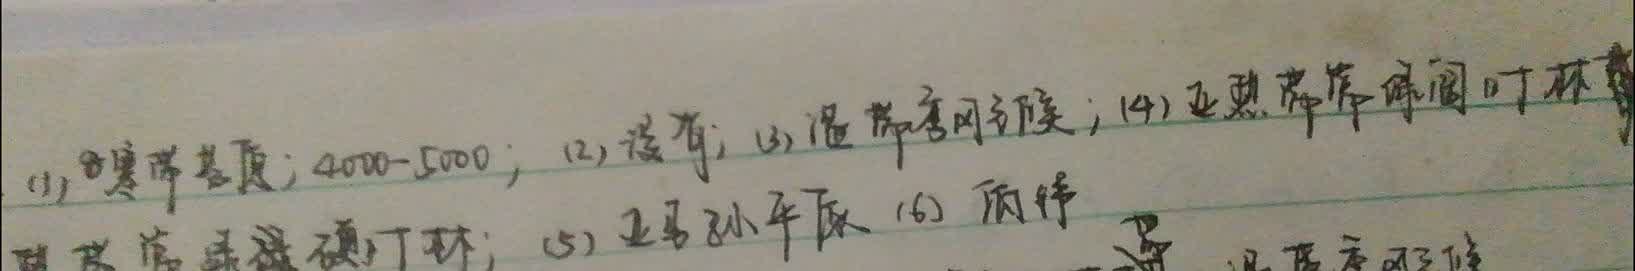 (1) 寒带苔原; 4000-5000; (2) 没有; (3) 温带季风气候; (4) 亚热带常绿阔叶林
带常绿硬叶林; (5) 亚马孙平原 (6) 雨林
温带季风气候